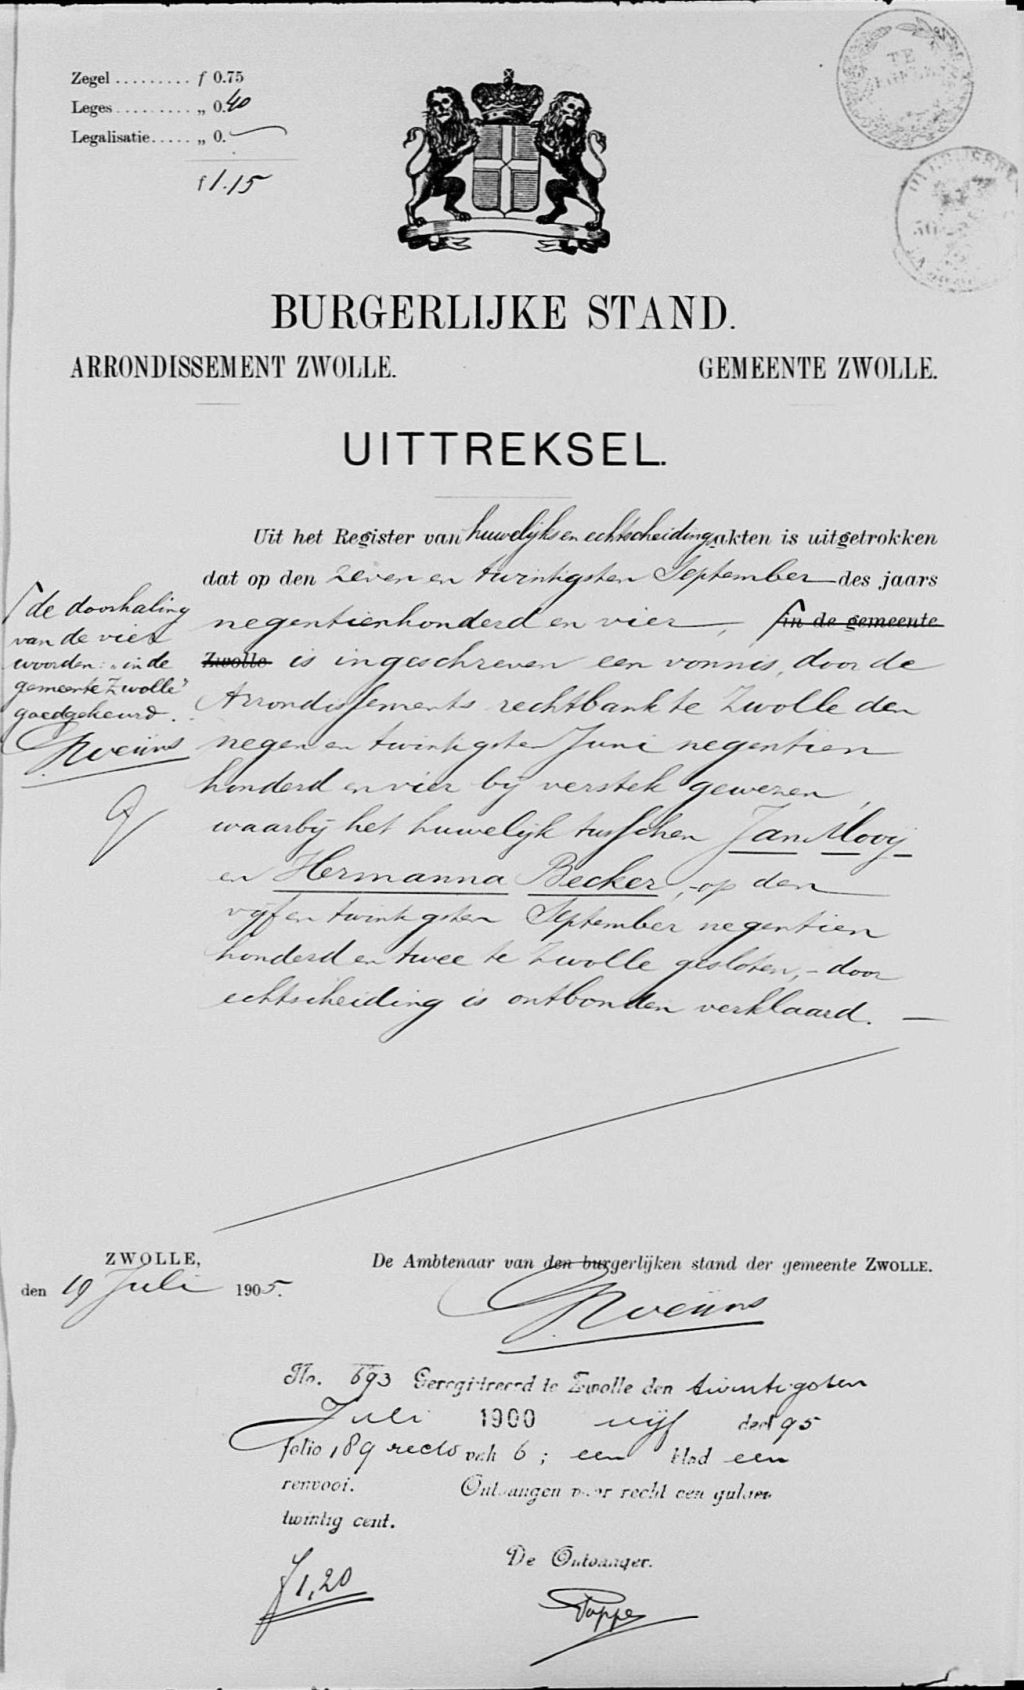 Zegel ......... f 0.75
Leges ......... „ 0.40
Legalisatie ..... „ 0.—
f 1.15
TE
BURGERLIJKE STAND.
ARRONDISSEMENT ZWOLLE. GEMEENTE ZWOLLE.
UITTREKSEL.
Uit het Register van huwelijks en echtscheidingakten is uitgetrokken
dat op den zeven en twintigsten September des jaars
negentienhonderd en vier, in de gemeente
Zwolle is ingeschreven een vonnis, door de
Arrondissements rechtbank te Zwolle den
negen en twintigsten Juni negentien
honderd en vier bij verstek gewezen,
waarbij het huwelijk tusschen Jan Mooij
en Hermanna Becker, op den
vijf en twintigsten September negentien
honderd en twee te Zwolle gesloten, - door
echtscheiding is ontbonden verklaard. —
de doorhaling
van de vier
woorden: „in de
gemeente Zwolle"
goedgekeurd.
ZWOLLE,
den 19 Juli 1905.
De Ambtenaar van den burgerlijken stand der gemeente ZWOLLE.
No. 693 Geregistreerd te Zwolle den twintigsten
Juli 1900 vijf deel 95
folio 189 recto vak 6 ; een blad een
renvooi. Ontvangen voor recht een gulden
twintig cent.
De Ontvanger.
f 1,20
Poppe